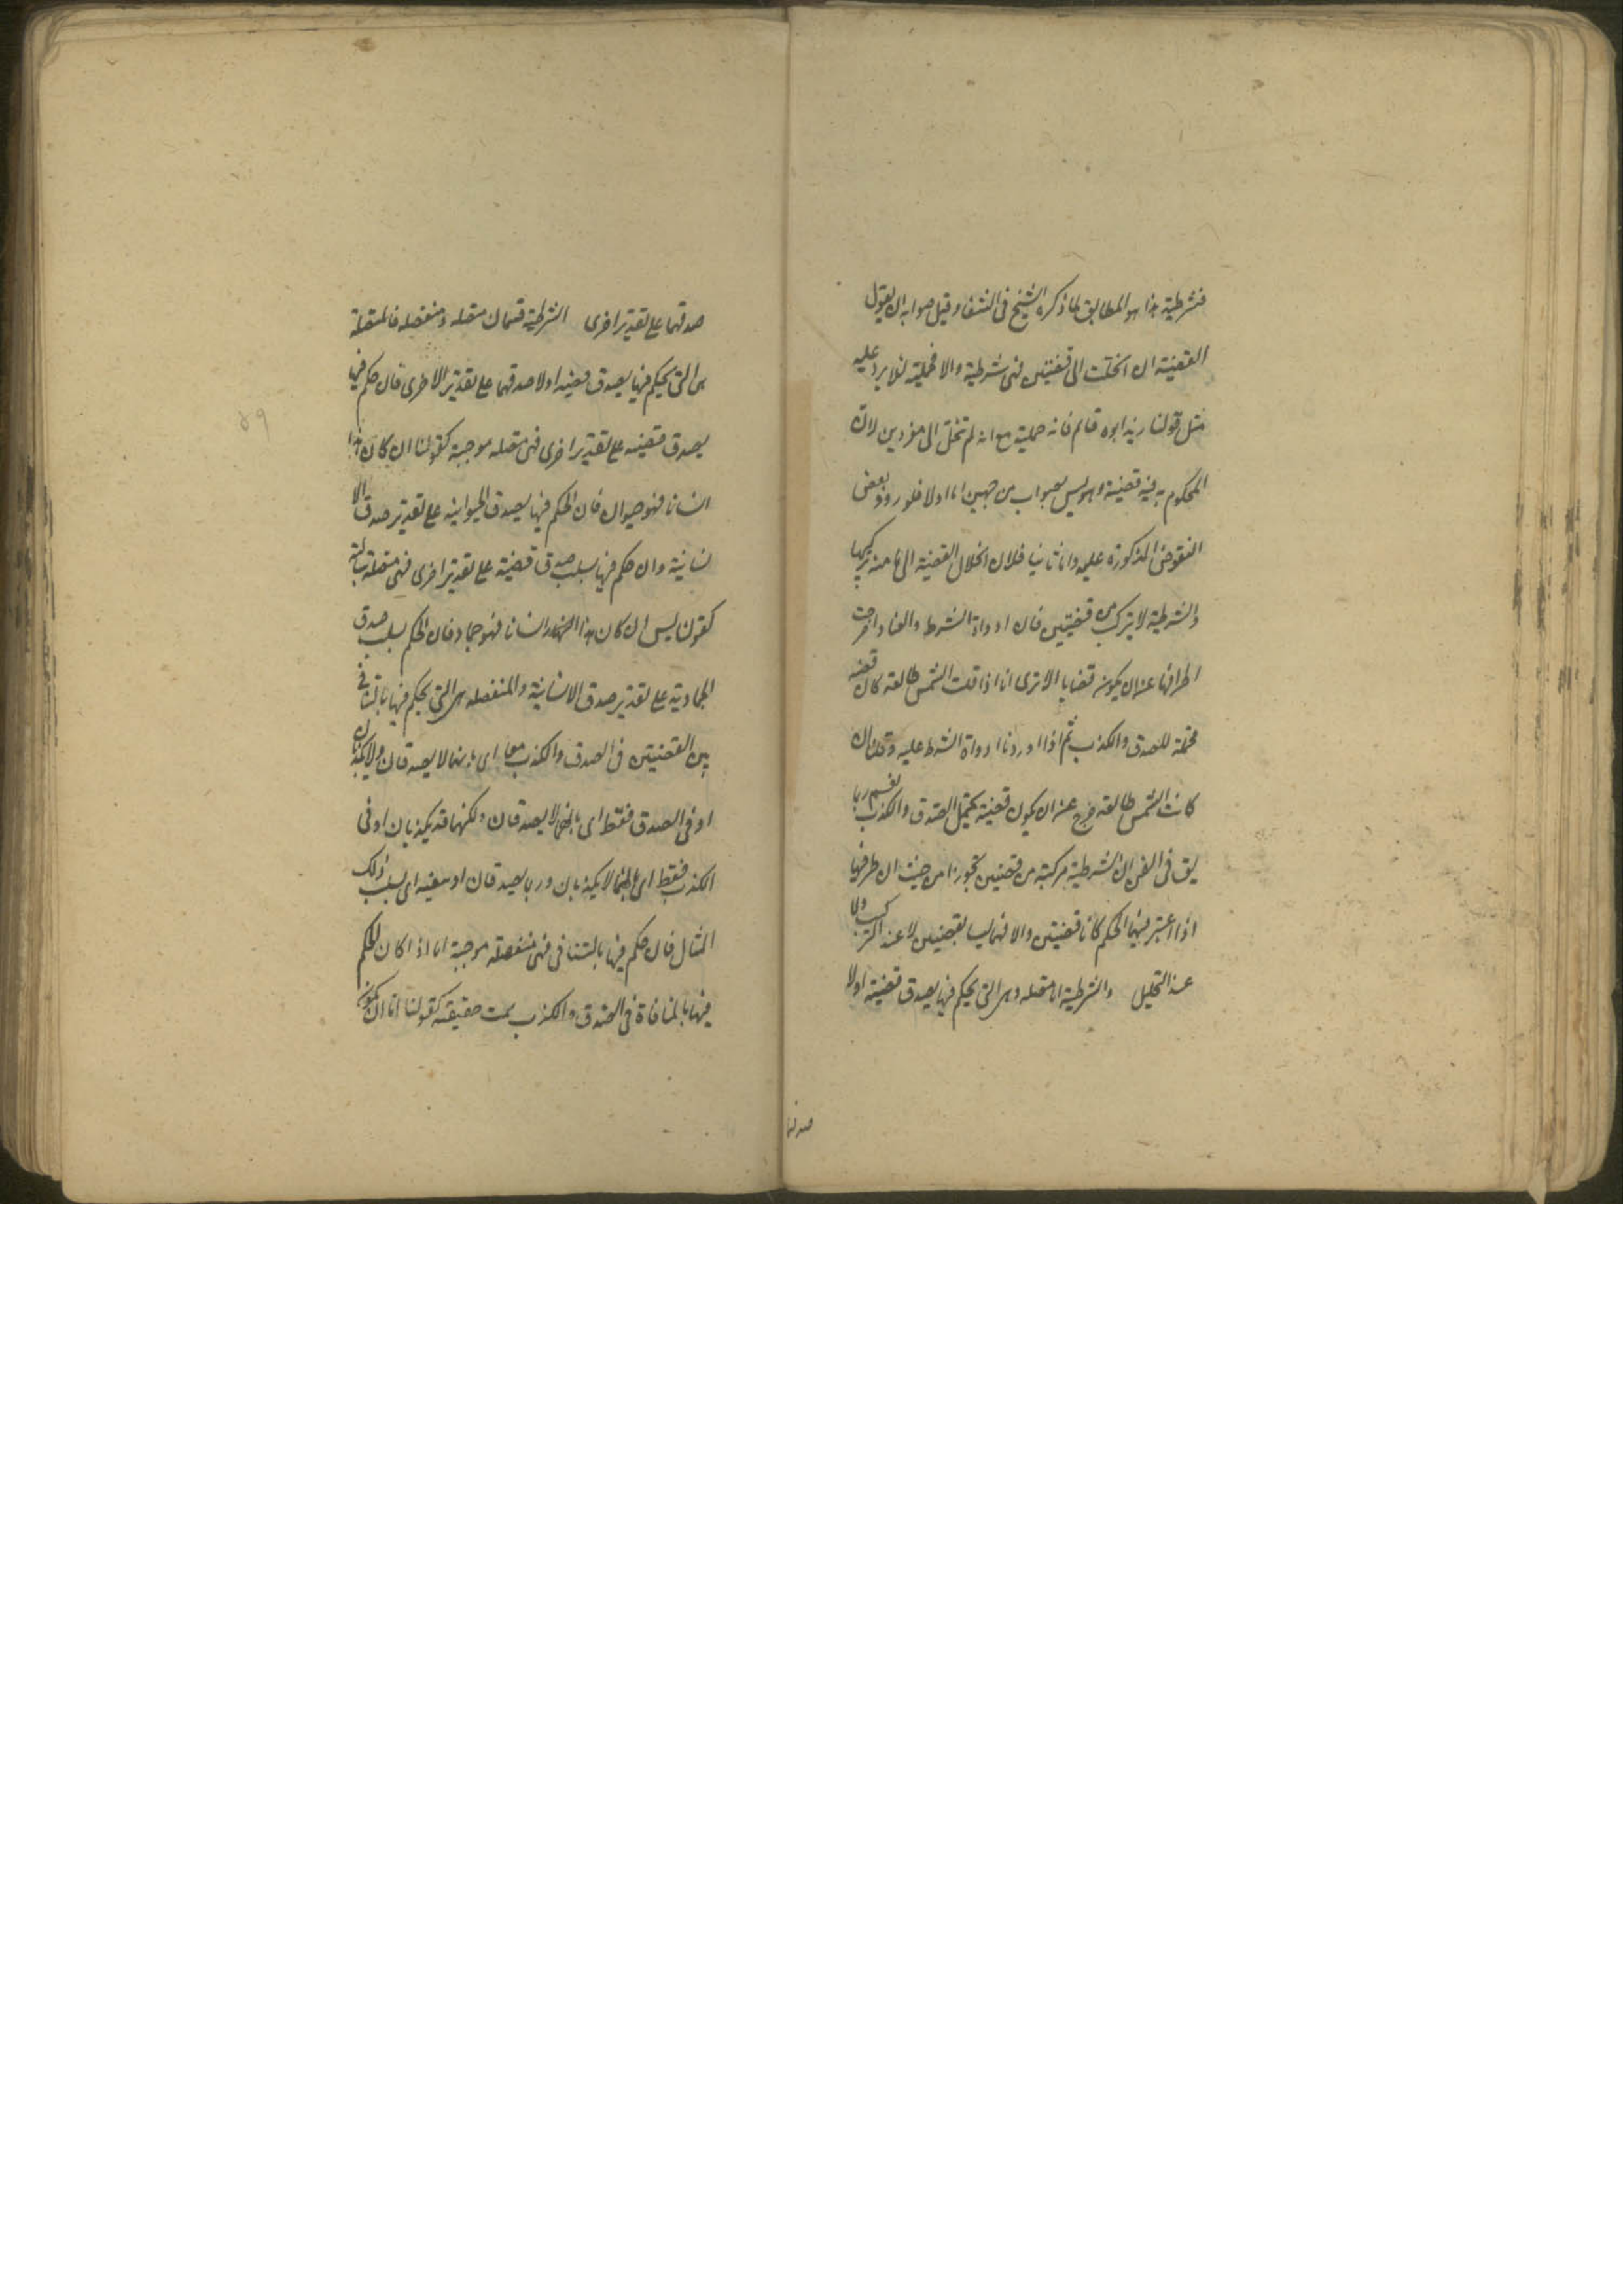 فشرطية هذا هو المطابق لما ذكره الشيخ فى الشفا وقيل صوابه ان يقول
القضية ان انحلت الى قضيتين فهى شرطية والا فحملية لئلا يرد عليه
مثل قولنا زيد ابوه قائم فانه حملية مع انه لم تنحل الى مفردين لان
المحكوم به فيه قضية وهو ليس بصواب من جهين اما اولا فلورود بعض
النقوض المذكورة عليه واما ثانيا فلان انحلال القضية الى ما منه تركيبها
والشرطية لا يتركب من قضيتين فان ادواة الشرط والعناد اخرجت
اطرافها عن ان يكون قضايا الا ترى انا اذا قلت الشمس طالعة كان قضية
محتملة للصدق والكذب ثم اذا اوردنا ادواة الشرط عليه وقلنا ان
كانت الشمس طالعة خرج عن ان يكون قضية يحتمل الصدق والكذب نعم ربما
يق فى الفن ان الشرطية مركبة من قضيتين تجوزا من حيث ان طرفيها
اذا اعتبر فيهما الحكم كانا قضيتين والا فهما ليسا بقضيتين لا عند التركيب ولا
عند التحليل والشرطية اما متصلة وهى التى يحكم فيها بصدق قضية اولا
صدقها
صدقهما على تقدير اخرى الشرطية قسمان متصلة ومنفصلة فالمتصلة
هى التى يحكم فيها بصدق قضية اولا صدقهما على تقدير الاخرى فان حكم فيها
بصدق قضية على تقدير اخرى فهى متصلة موجبة كقولنا ان كان هذا
انسانا فهو حيوان فان الحكم فيها بصدق الحيوانية على تقدير صدق الا
نسانية وان حكم فيها بسلب صدق قضية على تقدير اخرى فهى متصلة سالبة
كقولنا ليس ان كان هذا انسانا فهو جماد فان الحكم بسلب صدق
الجمادية على تقدير صدق الانسانية والمنفصلة هى التى يحكم فيها بالتنافى
بين القضيتين فى الصدق والكذب معا اى بانهما لا يصدقان ولا يكذبان
او فى الصدق فقط اى بانهما لا يصدقان ولكنهما قد يكذبان او فى
الكذب فقط اى بانهما لا يكذبان وربما يصدقان او بنفيه اى بسلب ذلك
المثال فان حكم فيها بالتنافى فهى منفصلة موجبة اما اذا كان الحكم
فيها بالمنافاة فى الصدق والكذب سمت حقيقية كقولنا اما ان يكون
٥٩